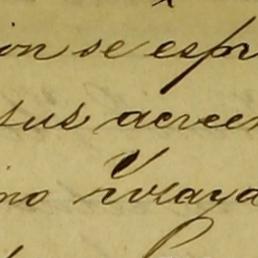 ion se espr
sus acree
ino Loayd